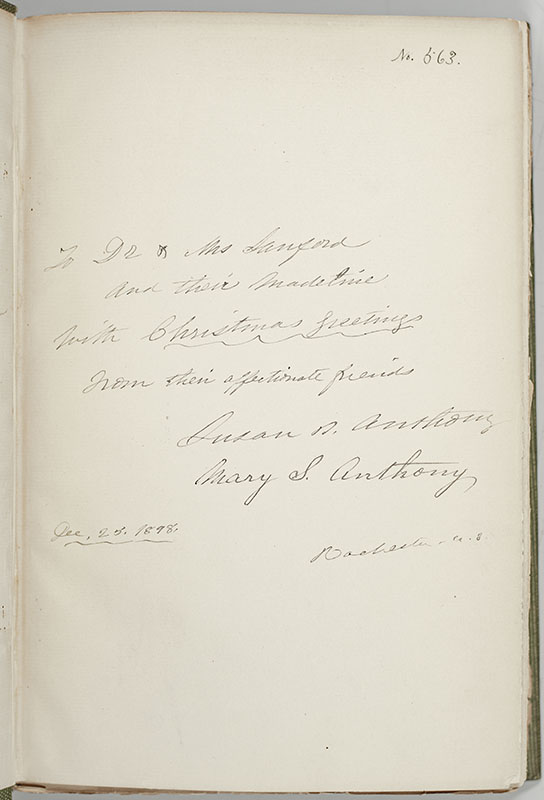 No. 563.
To Dr & Mrs Sanford
and their Madeline
With Christmas Greetings
from their affectionate friends
Susan B. Anthony
Mary S. Anthony
Dec. 25. 1898.
Rochester